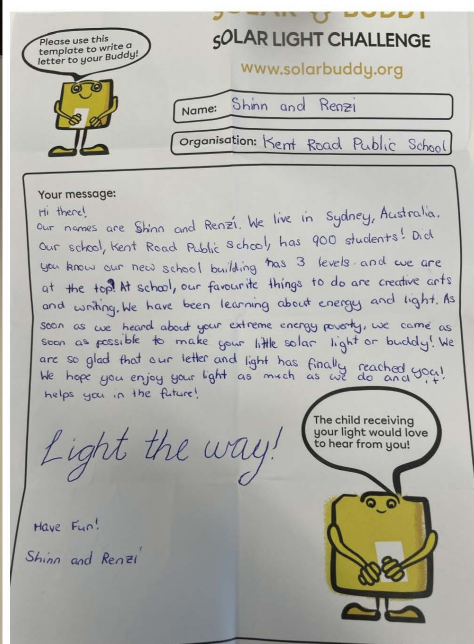 SOLAR BUDDY
SOLAR LIGHT CHALLENGE
www.solarbuddy.org
Please use this
template to write a
letter to your Buddy!
Name: Shinn and Renzi
Organisation: Kent Road Public School
Your message:
Hi there!
Our names are Shinn and Renzi. We live in Sydney, Australia.
Our school, Kent Road Public School, has 900 students! Did
you know our new school building has 3 levels and we are
at the top? At school, our favourite things to do are creative arts
and writing. We have been learning about energy and light. As
soon as we heard about your extreme energy poverty, we came as
soon as possible to make your little solar light or buddy! We
are so glad that our letter and light has finally reached you!
We hope you enjoy your light as much as we do and it
helps you in the future!
Light the way!
The child receiving
your light would love
to hear from you!
Have Fun!
Shinn and Renzi